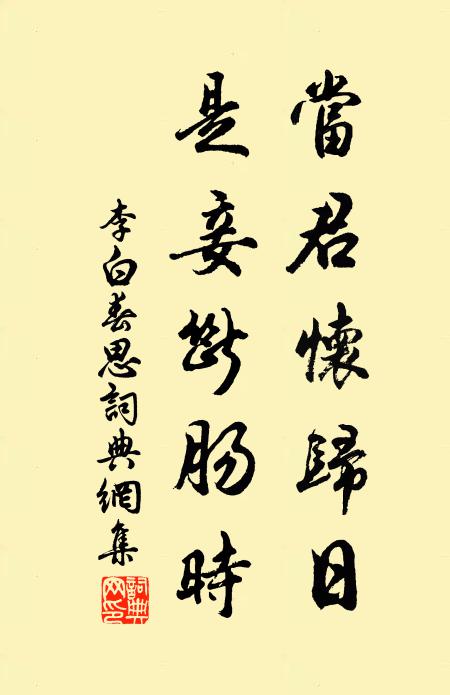 當君懷歸日
是妾斷腸時
李白春思詞典網集
詞典
網印